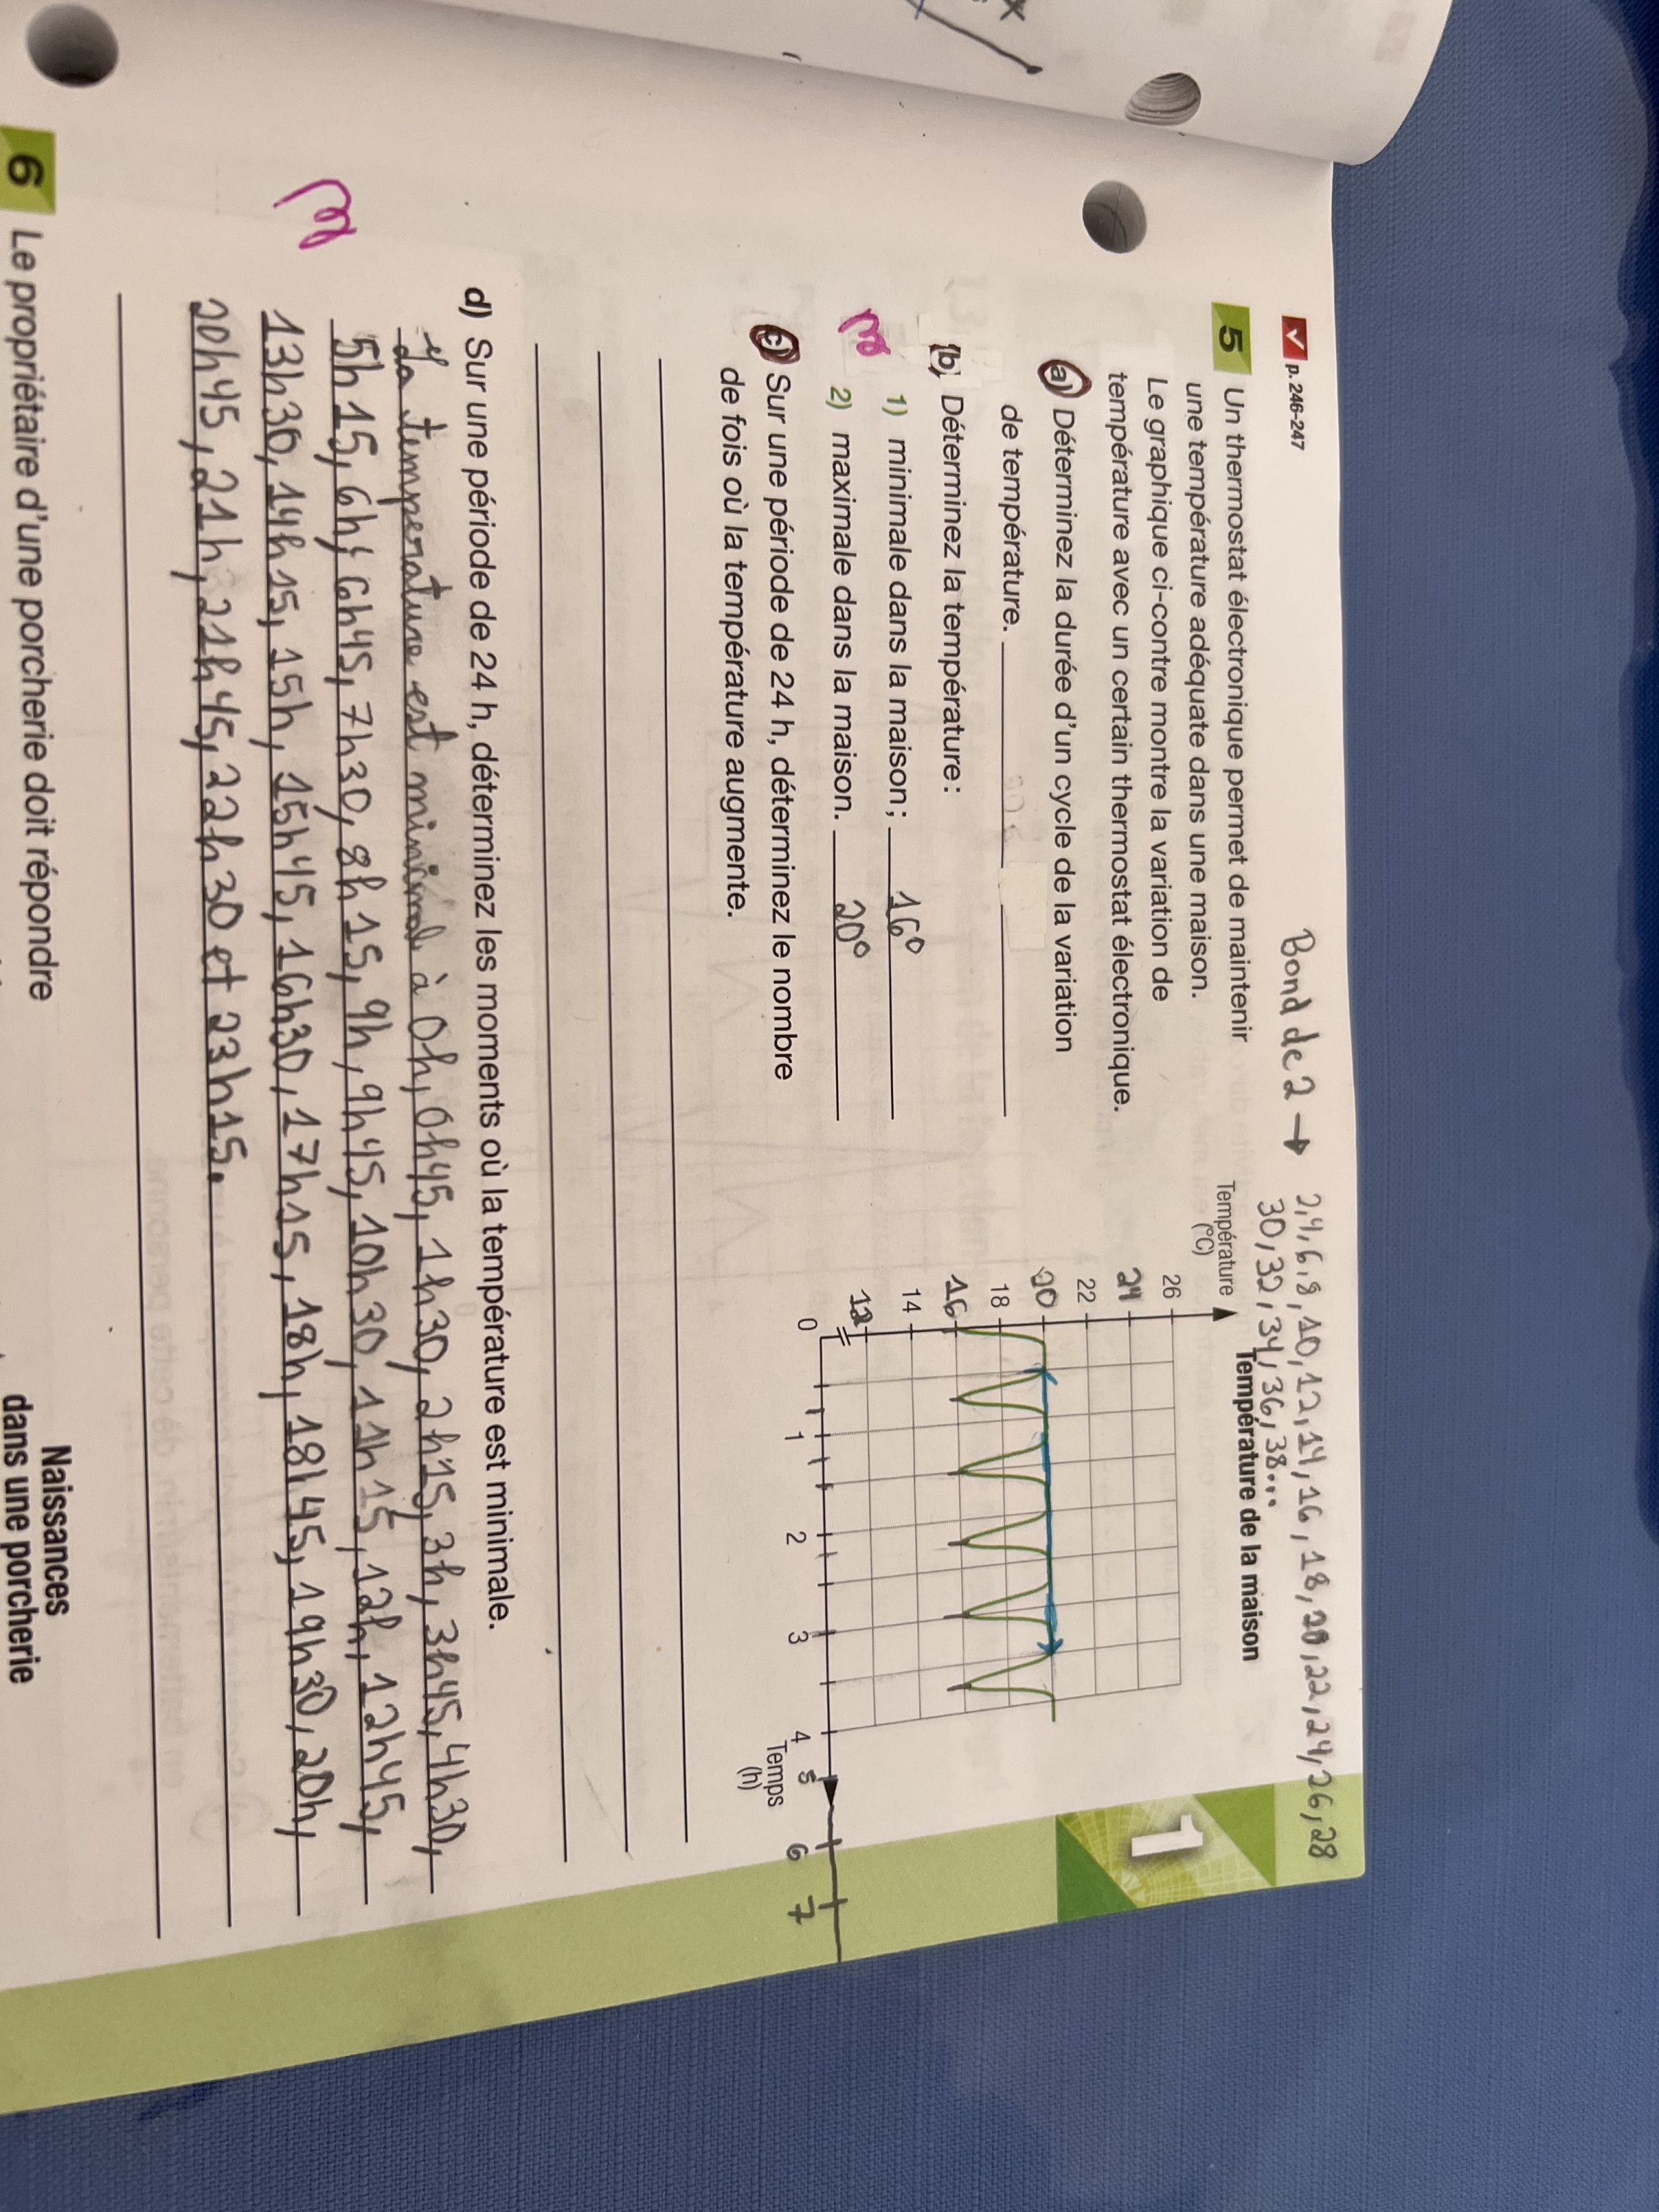 p. 246-247
Bond de 2 → 2,4,6,8,10,12,14,16,18,20,22,24,26,28
30,32,34,36,38...
5 Un thermostat électronique permet de maintenir
une température adéquate dans une maison.
Le graphique ci-contre montre la variation de
température avec un certain thermostat électronique.
a) Déterminez la durée d'un cycle de la variation
de température.
b) Déterminez la température :
1) minimale dans la maison ; 16°
2) maximale dans la maison. 20°
c) Sur une période de 24 h, déterminez le nombre
de fois où la température augmente.
Température de la maison
Température
(°C)
26
24
22
20
18
16
14
12
0 1 2 3 4 5 6 7
Temps
(h)
1
d) Sur une période de 24 h, déterminez les moments où la température est minimale.
La température est minimale à 0h, 0h45, 1h30, 2h15, 3h, 3h45, 4h30,
5h15, 6h, 6h45, 7h30, 8h15, 9h, 9h45, 10h30, 11h15, 12h, 12h45,
13h30, 14h15, 15h, 15h45, 16h30, 17h15, 18h, 18h45, 19h30, 20h,
20h45, 21h, 21h45, 22h30 et 23h15.
6 Le propriétaire d'une porcherie doit répondre
Naissances
dans une porcherie